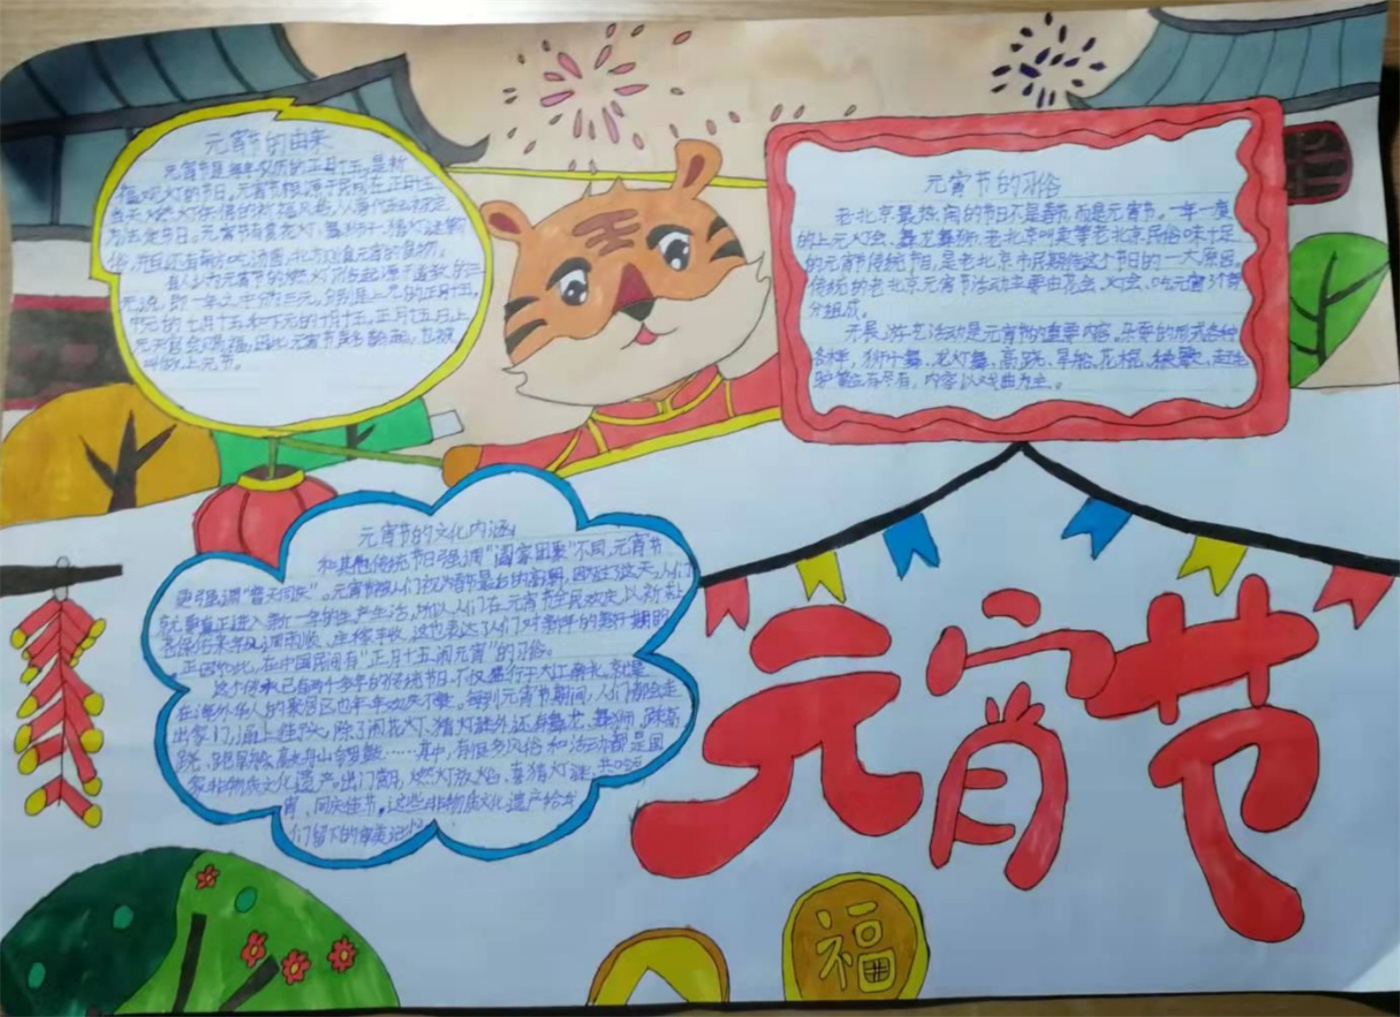 元宵节的由来
元宵节是每年农历的正月十五,是祈
福观灯的节日。元宵节根源于民间在正月十五
为法定节日。元宵节有赏花灯、舞狮子、猜灯谜等
俗,而且还有南方吃汤圆,北方吃食元宵的食物。
有人认为元宵节的燃灯习俗起源于道教的三
元说,即一年之中分三元,分别是上元的正月十五,
中元的七月十五和下元的十月十五,正月十五日上
元天官会赐福,因此元宵节
叫做上元节。
元宵节的习俗
老北京最热闹的节日不是春节,而是元宵节。一年一度
的上元灯会、舞龙舞狮,老北京叫卖等老北京民俗味十足
的元宵节传统节目,是老北京市民期待这个节日的一大原因
传统的老北京元宵节活动主要由花会、灯会、吃元宵3个部
分组成。
开展游艺活动是元宵节的重要内容。杂耍的形式各种
各样,狮子舞、龙灯舞、高跷、旱船、花棍、秧歌、
应有尽有,内容以戏曲为主。
元宵节的文化内涵
和其他传统节日强调“阖家团聚”不同,元宵节
更强调“普天同庆”。元宵节被人们视为春节最后的高潮,因为过了这天,人们
就要真正进入新一年的生产生活,所以人们在元宵节全民欢庆,以祈
来年风调雨顺、庄稼丰收,这也表达了人们对新年的美好期盼
正因如此,在中国民间有“正月十五闹元宵”的习俗。
这个传承已有两千多年的传统节日,不仅盛行于大江南北,就是
在海外华人的聚居区也年年欢庆不衰。每到元宵节期间,人们都会走
出家门,逼上街头,除了闹花灯、猜灯谜外,还有舞龙、舞狮、踩高
跷、跑旱船、扇舞山会锣鼓……其中,有很多风俗和活动都是国
家非物质文化遗产。出门赏月、燃灯放焰、喜猜灯谜、共吃元
宵、同庆佳节。这些非物质文化遗产给我
们留下的审美记忆
元宵节
福